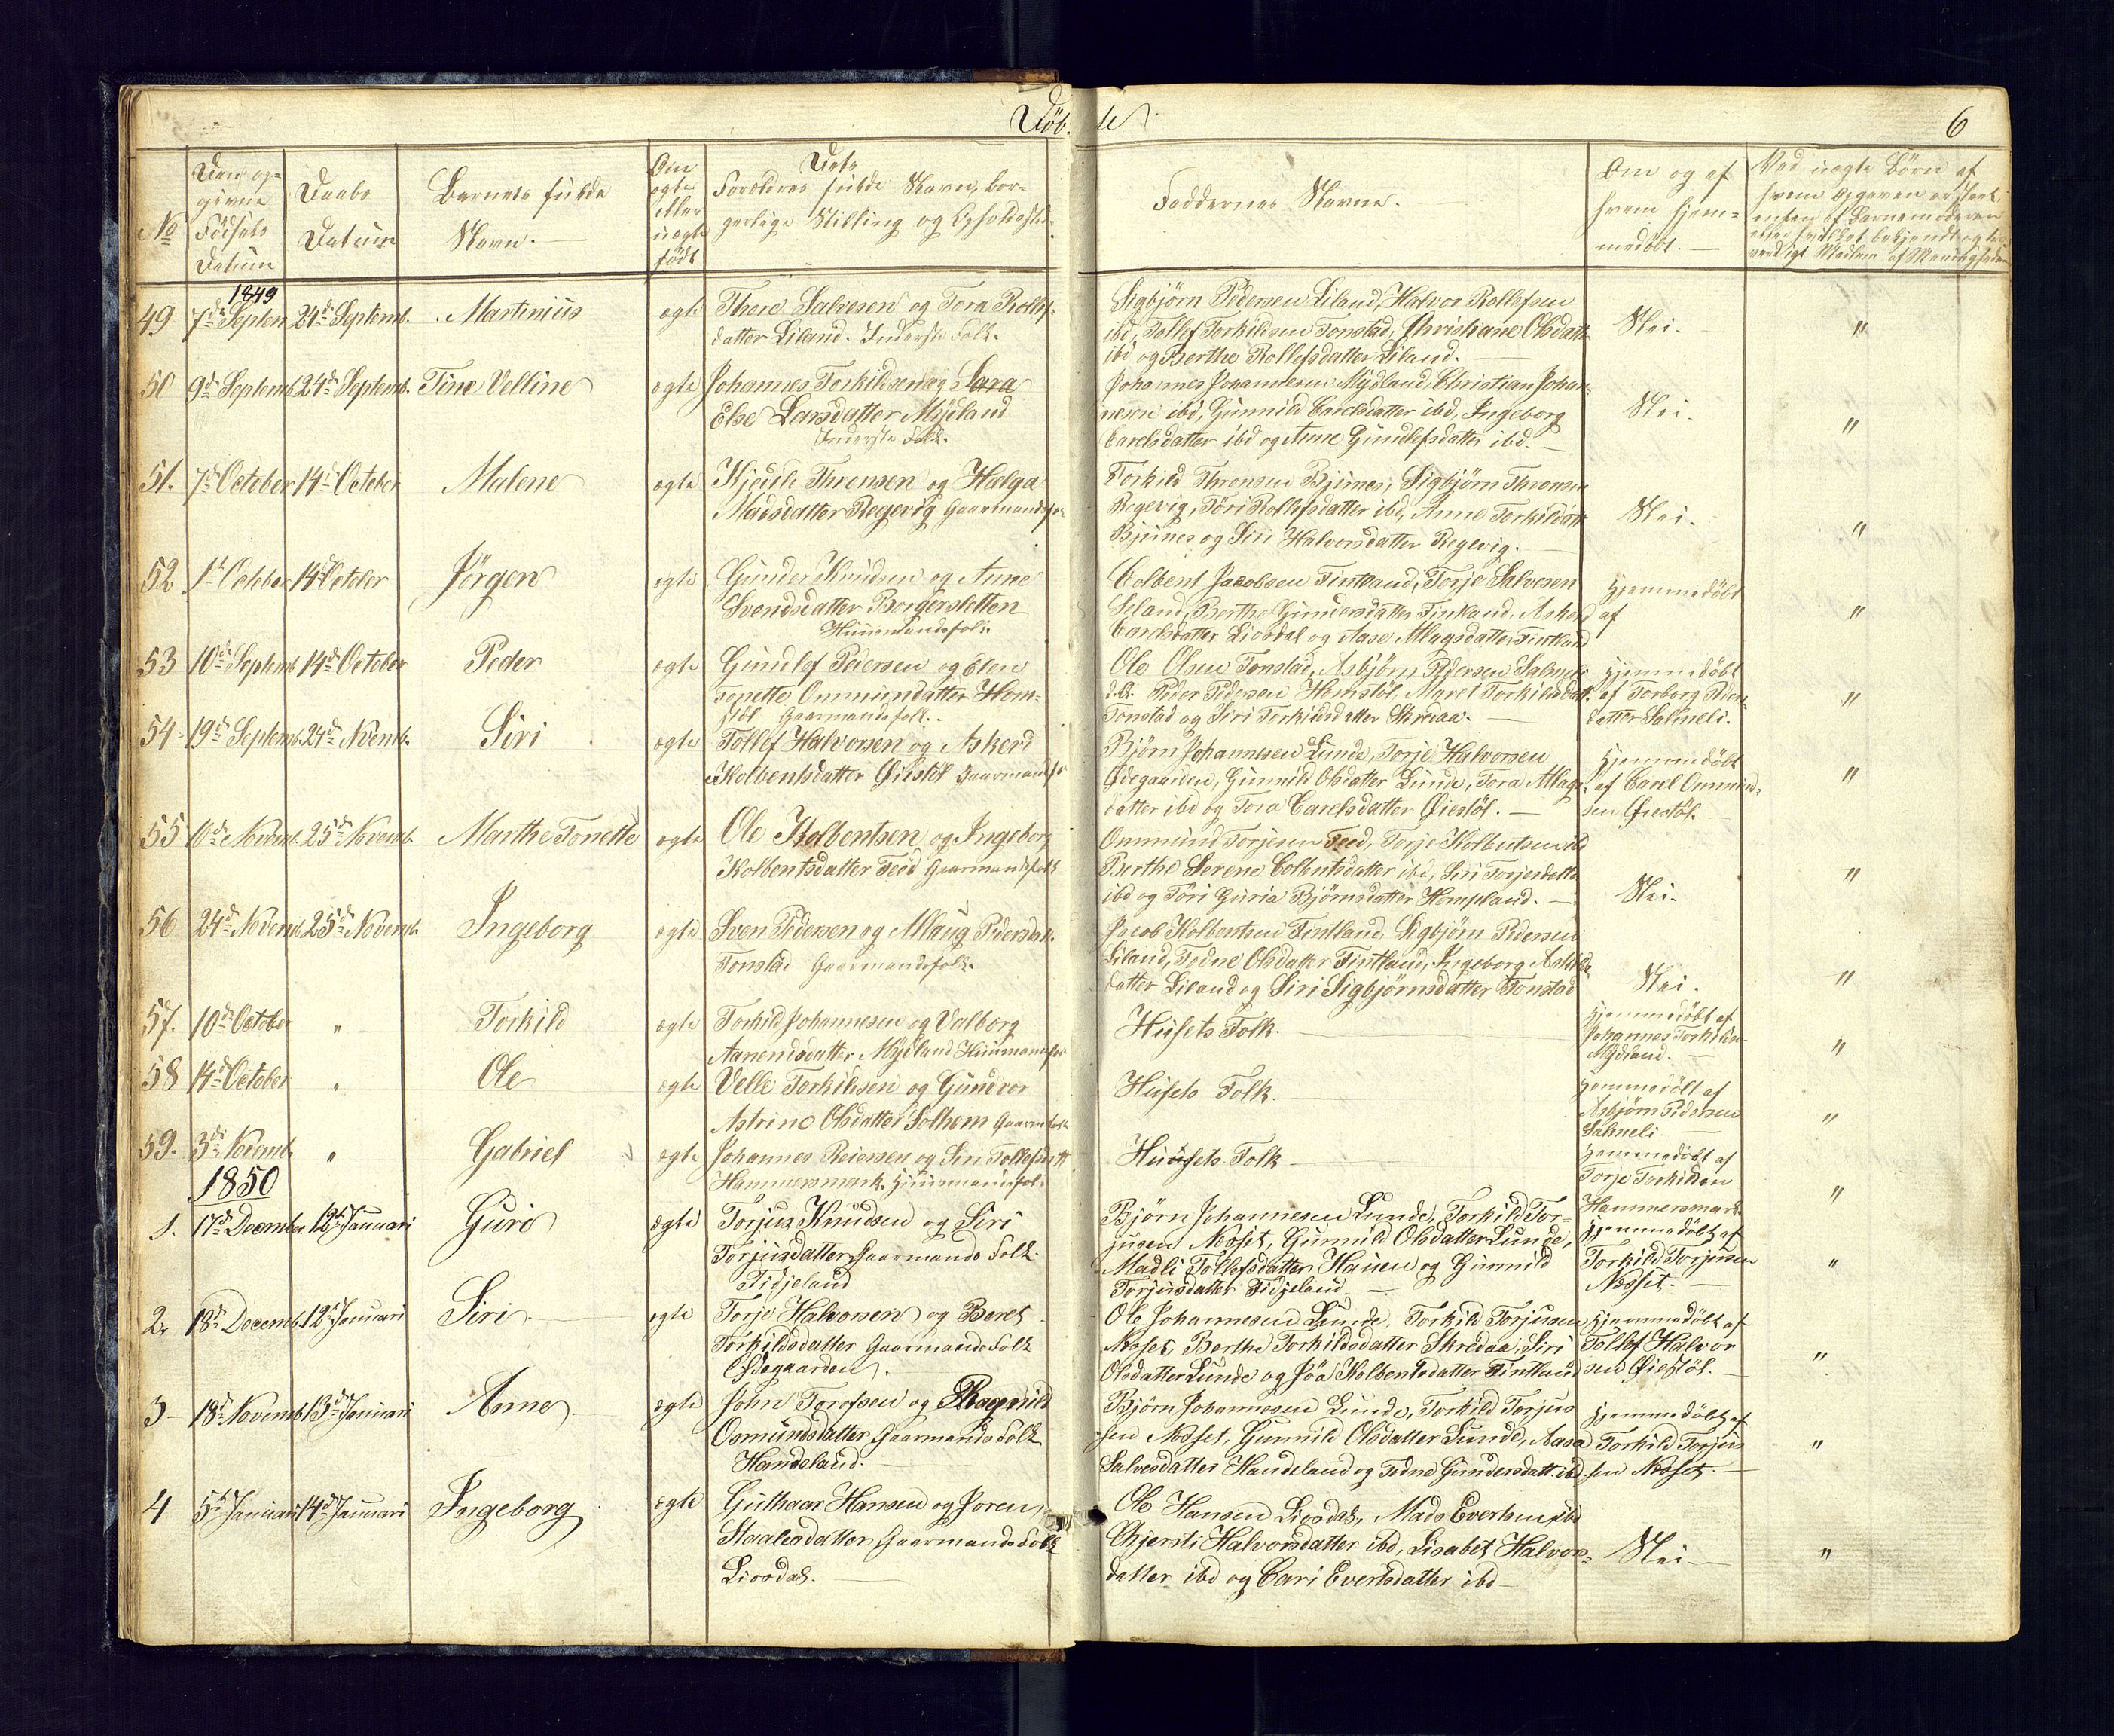 Døb- te
6
No
Den op-
givne
Födsels
Datum
Daabs
Datum
Barnets fulde
Navn.
Om
ægte
eller
uægte
født
Dets
Forældres fulde Navn, bor-
gerlige Stilling og Opholdssted.
Faddernes Navne.
Om og af
hvem hjem-
medøbt.
Ved uægte Börn af
hvem Opgaven er skeet,
enten af Barnemoderen
eller hvilket bekjendt og tro-
værdigt Medlem af Menigheden
1849
49 7de Septem 24de Septemb. Martinius ægte
Thore Salvesen og Tora Rollef-
datter Liland. Inderste Folk.
Sigbjörn Pedersen Liland, Halvor Rollefsen
ibd, Tollef Torkildsen Tonstad, Christiane Olsdatt
ibd og Berthe Rollefsdatter Liland.
Nei.
"
50 9de Septemb. 24de Septemb. Tine Velline ægte
Johannes Torkildsen og Sara
Else Larsdatter Mydland
Inderste Folk.
Johannes Johannesen Mydland, Christian Johan-
nesen ibd, Gunnild Carelsdatter ibd, Ingeborg
Carelsdatter ibd og Anne Gundlefsdatter ibd.
Nei.
"
51. 7de October 14de October Malene ægte
Kjedel Thronsen og Halga
Madsdatter Regevig Gaarmandsfo
Torkild Thronsen Bjunes, Sigbjörn Thronsen
Regevig, Töri Rollefsdatter ibd, Anne Torkildsdtt
Bjunes og Siri Halvorsdatter Regevig.
Nei.
"
52 1de October 14de October Jörgen ægte
Gunder Knudsen og Anne
Svendsdatter Borgersletten
Huusmandsfolk.
Colbent Jacobsen Fintland, Torje Salvesen
Seland, Berthe Gundersdatter Fintland, Asberd
Carelsdatter Liosdal og Aase Allagsdatter Fintland
Hjemmedöbt
af
"
53 10de Septemb 14de October Peder ægte
Gundlef Pedersen og Elen
Tonette Ommundatter Hom-
stöl Gaarmandsfolk.
Ole Olsen Tonstad, Asbjörn Pedersen Salmeli
Peder Pedersen Homstöl, Maret Torkildsdatt.
Tonstad og Siri Torkildsdatter Skredaa.
Hjemmedöbt
af Torborg Peders-
datter Salmeli.
"
54 19de Septemb. 24de Novemb. Siri ægte
Tollef Halvorsen og Askerd
Kolbentsdatter Öiestöl Gaarmandsfo
Björn Johannesen Lunde, Torje Halvorsen
Ödegaarden, Gunnild Olsdatter Lunde, Tora Allags-
datter ibd og Tora Carelsdatter Öiestöl.
Hjemmedöbt
af Carel Ommund-
sen Öiestöl.
"
55 10de Novemb. 25de Novemb. Marthe Tonette ægte
Ole Kolbentsen og Ingeborg
Kolbentsdatter Feed Gaarmandsfolk
Ommund Torjesen Feed, Torje Kolbentsen ibd
Berthe Serene Colbentsdatter ibd, Siri Torjesdatter
ibd og Töri Guria Björnsdatter Hompland.
Nei.
"
56 24de Novemb. 25de Novemb. Ingeborg ægte
Sven Pedersen og Allaug Pedersdat.
Tonstad Gaarmandsfolk.
Jacob Kolbentsen Fintland, Sigbjörn Pedersen
Liland, Todne Olsdatter Fintland, Ingeborg Askilds-
datter Liland og Siri Sigbjörnsdatter Tonstad
Nei.
"
57. 10de October " Torkild ægte
Torkild Johannesen og Valborg
Aanendsdatter Mydland Huusmandsfo
Husets Folk.
Hjemmedöbt af
Johannes Torkildsen
Mydland.
"
58 14de October " Ole ægte
Velle Torkildsen og Gundvor
Astrine Olsdatter Solhem Gaarmfolk
Husets Folk.
Hjemmedöbt af
Asbjörn Pedersen
Salmeli
"
59. 3de Novemb. " Gabriel ægte
Johannes Reiersen og Siri Tollefsdatt
Hammersmark. Huusmandsfol.
Huusets Folk
Hjemmedöbt af
Torje Torkildsen
Hammersmark.
"
1850
1. 17de December. 12de Januari Guro ægte
Torjus Knudsen og Siri
Torjusdatter Gaarmands Folk.
Fidjeland
Björn Johannesen Lunde, Torkild Tor-
jusen Nosset, Gunnild Olsdatter Lunde,
Madli Tollefsdatter Hauen og Gunnild
Torjusdatter Fidjeland.
Hjemmedöbt af
Torkild Torjusen
Nosset.
"
2. 18de Decemb. 12de Januari Siri ægte
Torje Halvorsen og Beret
Torkildsdatter Gaarmands Folk
Ödegaarden.
Ole Johannesen Lunde, Torkild Torjusen
Nosset, Berthe Torkildsdatter Skredaa, Siri
Olsdatter Lunde og Jöa Kolbentsdatter Fintland
Hjemmedöbt af
Tollef Halvor
sen Öiestöl.
"
3 18de Novemb. 13de Januari Anne. ægte
John Torofsen og Ragnild
Osmundsdatter Gaarmands Folk
Handeland.
Björn Johannesen Lunde, Torkild Torjus
sen Nosset, Gunnild Olsdatter Lunde, Aasa
Salvesdatter Handeland og Todne Gundersdatt. ibd.
Hjemmedöbt af
Torkild Torjus
sen Nosset.
"
4 5te Januari 14de Januari Ingeborg ægte
Guthaar Hansen og Joren
Staalesdatter Gaarmands Folk
Liosdal.
Ole Hansen Liosdal, Mads Evertsen ibd
Chjersti Halvorsdatter ibd, Lisabet Halvors-
datter ibd og Cari Evertsdatter ibd
Nei
"